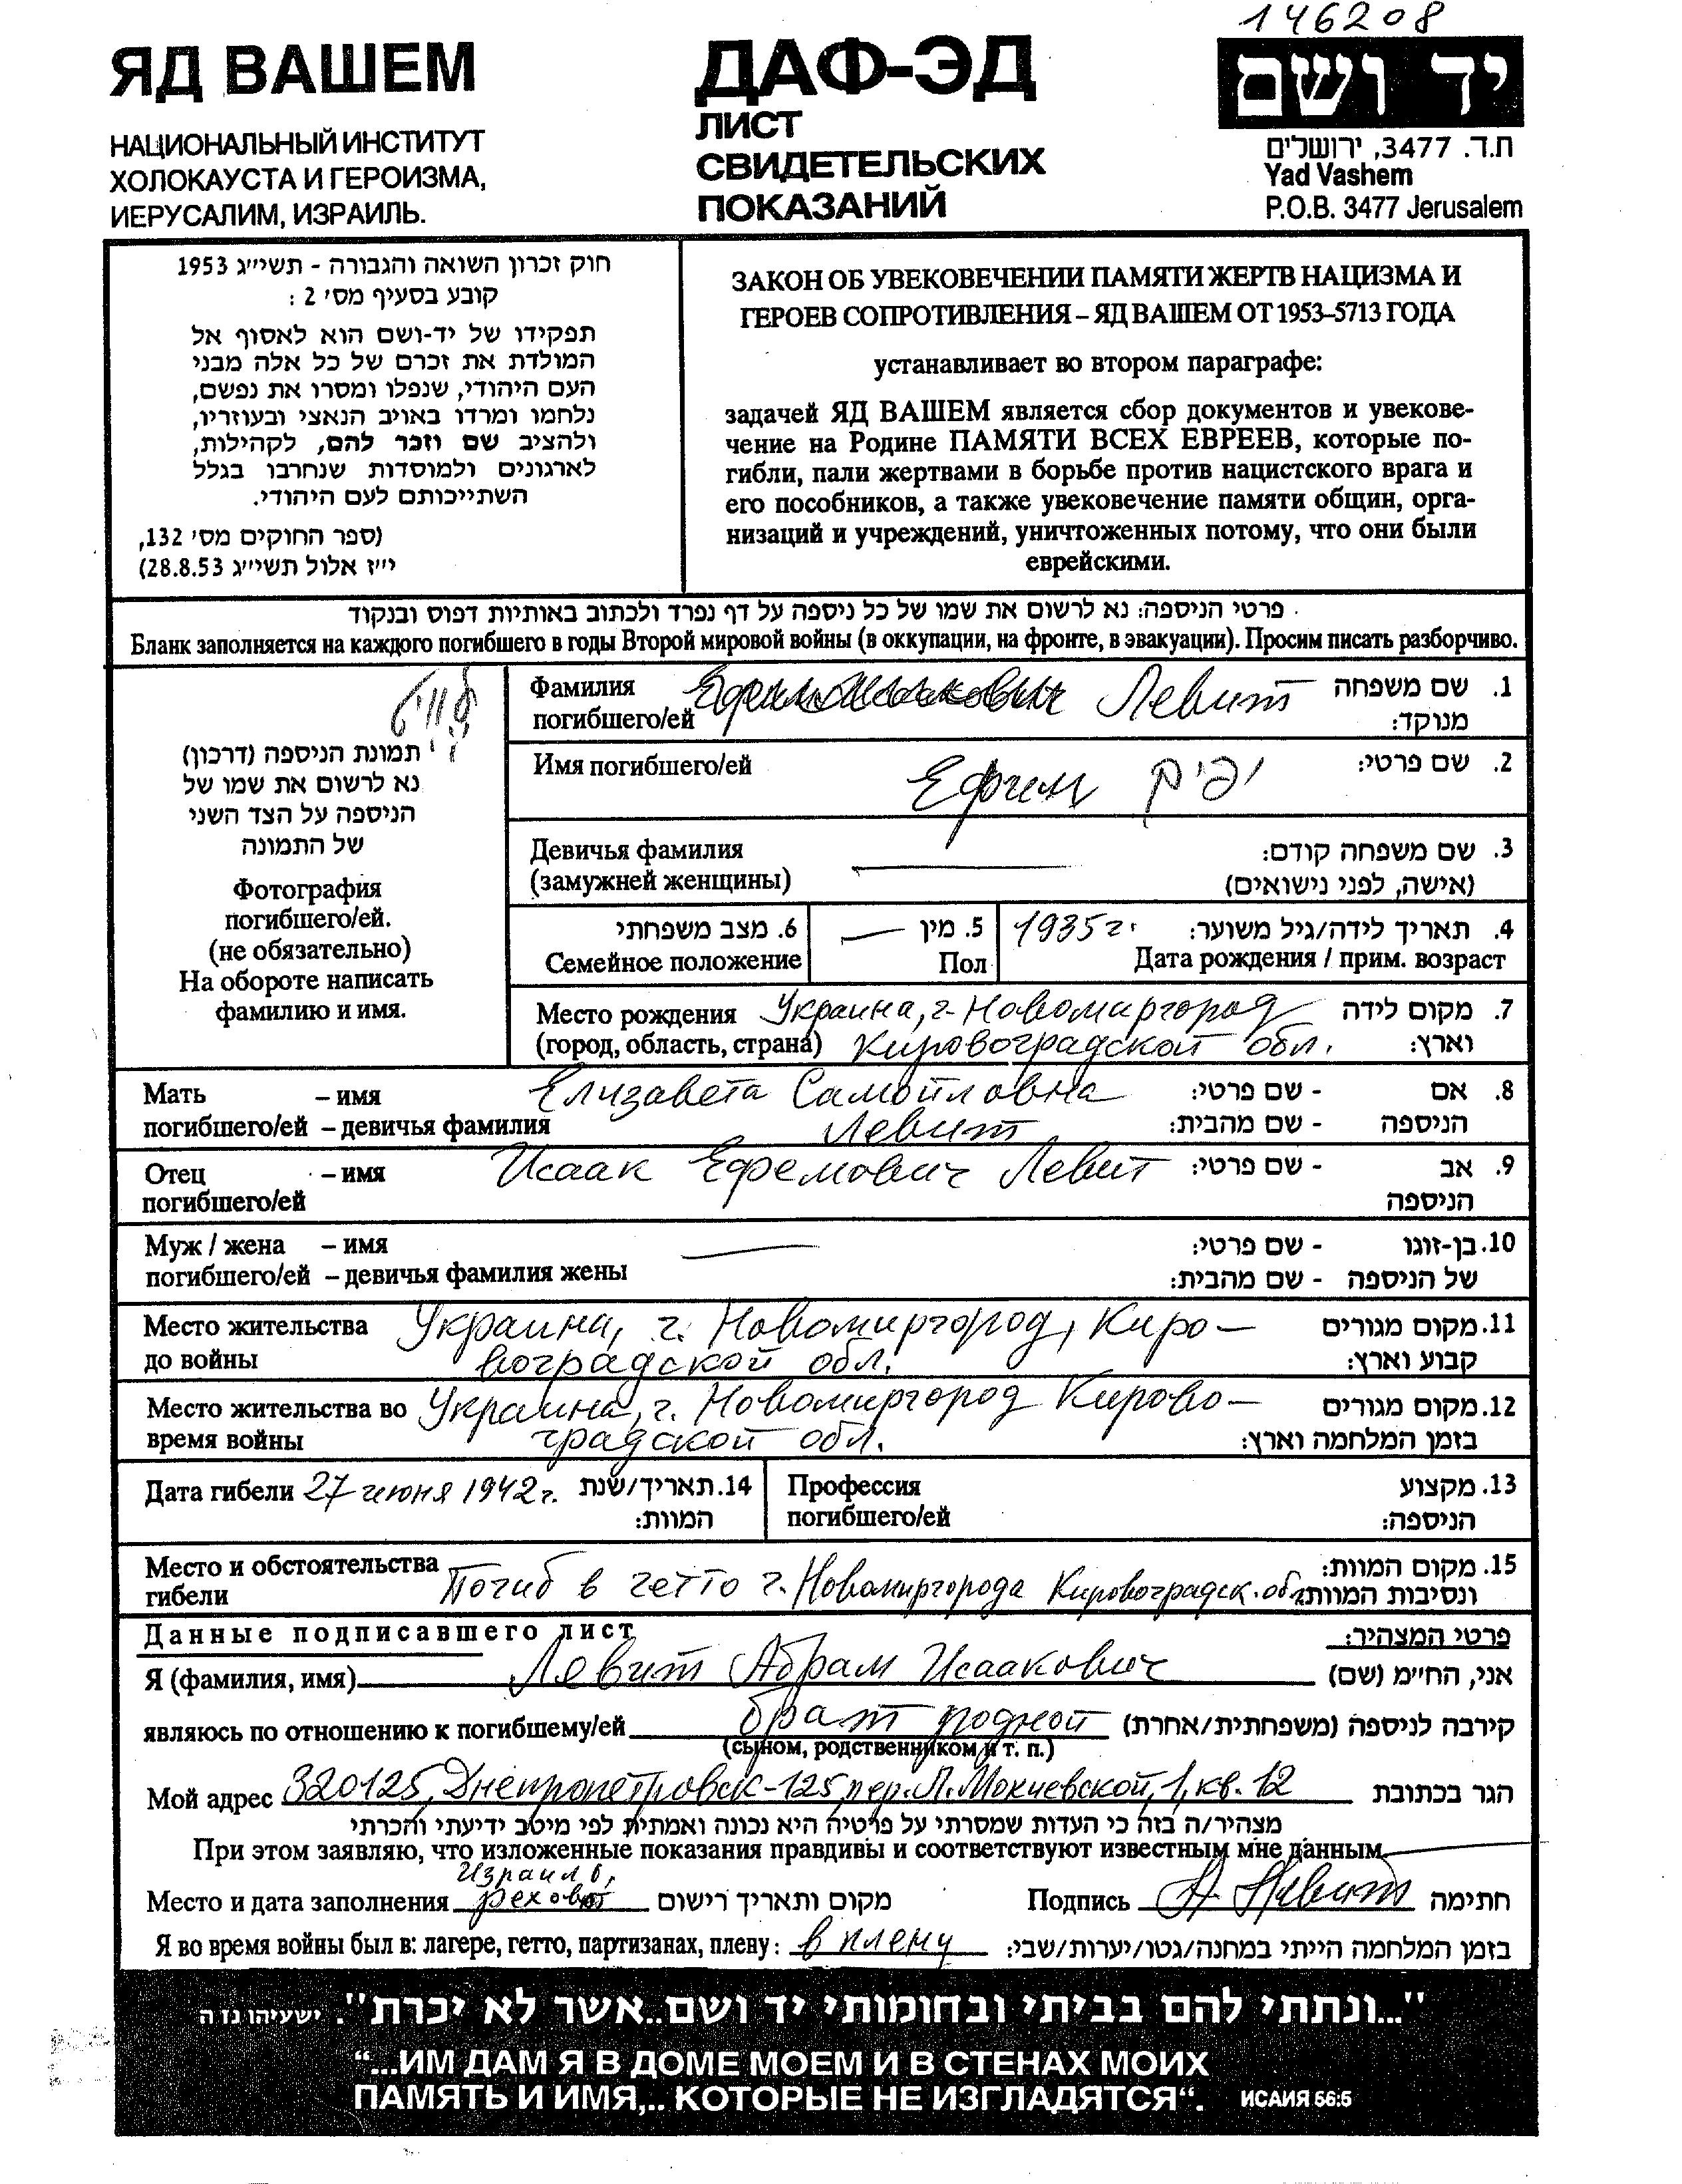 146208
ЯД ВАШЕМ
НАЦИОНАЛЬНЫЙ ИНСТИТУТ
ХОЛОКАУСТА И ГЕРОИЗМА,
ИЕРУСАЛИМ, ИЗРАИЛЬ.
ДАФ-ЭД
ЛИСТ
СВИДЕТЕЛЬСКИХ
ПОКАЗАНИЙ
יד ושם
ת.ד. 3477, ירושלים
Yad Vashem
P.O.B. 3477 Jerusalem
חוק זכרון השואה והגבורה - תשי״ג 1953
קובע בסעיף מס׳ 2 :
תפקידו של יד-ושם הוא לאסוף אל
המולדת את זכרם של כל אלה מבני
העם היהודי, שנפלו ומסרו את נפשם,
נלחמו ומרדו באויב הנאצי ובעוזריו,
ולהציב שם וזכר להם, לקהילות,
לארגונים ולמוסדות שנחרבו בגלל
השתייכותם לעם היהודי.
(ספר החוקים מס׳ 132,
י״ז אלול תשי״ג 28.8.53)
ЗАКОН ОБ УВЕКОВЕЧЕНИИ ПАМЯТИ ЖЕРТВ НАЦИЗМА И
ГЕРОЕВ СОПРОТИВЛЕНИЯ – ЯД ВАШЕМ ОТ 1953–5713 ГОДА
устанавливает во втором параграфе:
задачей ЯД ВАШЕМ является сбор документов и увекове-
чение на Родине ПАМЯТИ ВСЕХ ЕВРЕЕВ, которые по-
гибли, пали жертвами в борьбе против нацистского врага и
его пособников, а также увековечение памяти общин, орга-
низаций и учреждений, уничтоженных потому, что они были
еврейскими.
פרטי הניספה: נא לרשום את שמו של כל ניספה על דף נפרד ולכתוב באותיות דפוס ובנקוד
Бланк заполняется на каждого погибшего в годы Второй мировой войны (в оккупации, на фронте, в эвакуации). Просим писать разборчиво.
תמונת הניספה (דרכון)
נא לרשום את שמו של
הניספה על הצד השני
של התמונה
Фотография
погибшего/ей.
(не обязательно)
На обороте написать
фамилию и имя.
Фамилия Левит 1. שם משפחה
погибшего/ей מנוקד:
Имя погибшего/ей Ефим יפים 2. שם פרטי:
Девичья фамилия 3. שם משפחה קודם:
(замужней женщины) (אישה, לפני נישואים)
6. מצב משפחתי 5. מין — 1935 г. 4. תאריך לידה/גיל משוער:
Семейное положение Пол Дата рождения / прим. возраст
Место рождения Украина, г. Новомиргород 7. מקום לידה
(город, область, страна) Кировоградской обл. וארץ:
Мать – имя Елизавета Самойловна 8. אם - שם פרטי:
погибшего/ей – девичья фамилия Левит הניספה - שם מהבית:
Отец – имя Исаак Ефемович Левит 9. אב - שם פרטי:
погибшего/ей הניספה
Муж / жена – имя — 10. בן-זוגו - שם פרטי:
погибшего/ей – девичья фамилия жены של הניספה - שם מהבית:
Место жительства Украина, г. Новомиргород, Киро- 11. מקום מגורים
до войны воградской обл. קבוע וארץ:
Место жительства во Украина, г. Новомиргород Кирово- 12. מקום מגורים
время войны градской обл. בזמן המלחמה וארץ:
Дата гибели 27 июня 1942 г. 14. תאריך/שנת Профессия 13. מקצוע
המוות: погибшего/ей הניספה:
Место и обстоятельства Погиб в гетто г. Новомиргорода Кировоградск. обл. 15. מקום המוות:
гибели ונסיבות המוות:
Данные подписавшего лист פרטי המצהיר:
Я (фамилия, имя) Левит Абрам Исаакович אני, החי״מ (שם)
являюсь по отношению к погибшему/ей брат родной קירבה לניספה (משפחתית/אחרת)
(сыном, родственником и т. п.)
Мой адрес 320125, Днепропетровск-125, пер. Л. Мокиевской, 1, кв. 12 הגר בכתובת
מצהיר/ה בזה כי העדות שמסרתי על פרטיה היא נכונה ואמתית לפי מיטב ידיעתי והכרתי
При этом заявляю, что изложенные показания правдивы и соответствуют известным мне данным.
Израиль,
Место и дата заполнения Реховот מקום ותאריך רישום Подпись А Левит חתימה
Я во время войны был в: лагере, гетто, партизанах, плену: в плену בזמן המלחמה הייתי במחנה/גטו/יערות/שבי:
"...ונתתי להם בביתי ובחומותי יד ושם..אשר לא יכרת". ישעיהו נו ה
“...ИМ ДАМ Я В ДОМЕ МОЕМ И В СТЕНАХ МОИХ
ПАМЯТЬ И ИМЯ,.. КОТОРЫЕ НЕ ИЗГЛАДЯТСЯ“. ИСАИЯ 56:5